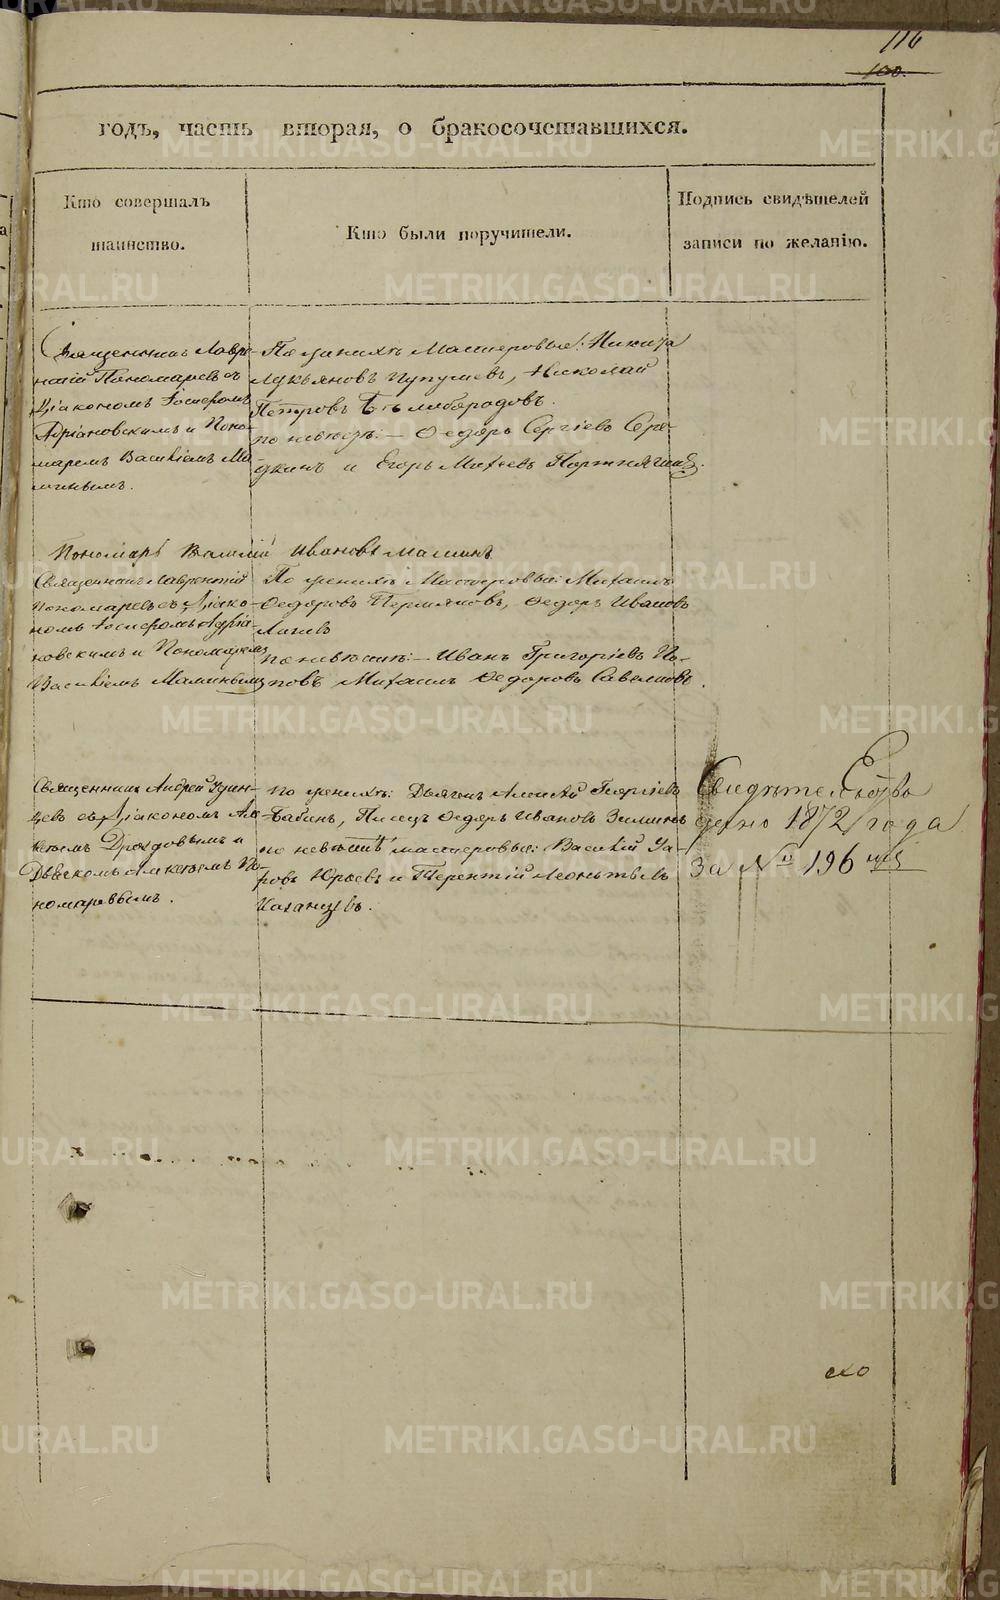 116
100.
годъ, часть вторая, о бракосочетавшихся.
Кто совершалъ
таинство.
Кто были поручители.
Подпись свидѣтелей
записи по желанію.
Священникъ Лавре-
нтій Пономаревъ съ
Діакономъ Іосифомъ
Адріановскимъ и Поно-
маремъ Василіемъ Ма-
минымъ.
По женихѣ Мастеровые: Никита
Лукьяновъ Пупышевъ, Николай
Петровъ Бѣлобородовъ.
по невѣстѣ: – Ѳедоръ Сергѣевъ Сере-
дкинъ и Егоръ Матвеевъ Портнягинъ.
Пономарь Василій Ивановъ Маминъ
Священникъ Лаврентій
Пономаревъ съ Діако-
номъ Іосифомъ Адріа-
новскимъ и Пономаремъ
Василіемъ Маминымъ
По женихѣ Мастеровые: Михаилъ
Ѳедоровъ Пермяковъ, Ѳедоръ Ивановъ
по невѣстѣ: – Иванъ Григорьевъ По-
повъ Михаилъ Ѳедоровъ Савельевъ.
Священникъ Андрей Удин-
цевъ съ Діакономъ Але-
ксѣемъ Дроздовымъ и
Дьячкомъ Алексѣемъ По-
номаревымъ.
по женихѣ: Дьячекъ Алексѣй Георгіевъ
Бабинъ, Писецъ Ѳедоръ Ивановъ Зиминъ
по невѣстѣ мастеровые: Василій Уа-
ровъ Юрьевъ и Терентій Леонтьевъ
Казанцевъ.
Свидѣтельство
дано 1872 года
За № 196 мъ
METRIKI.GASO-URAL.RU